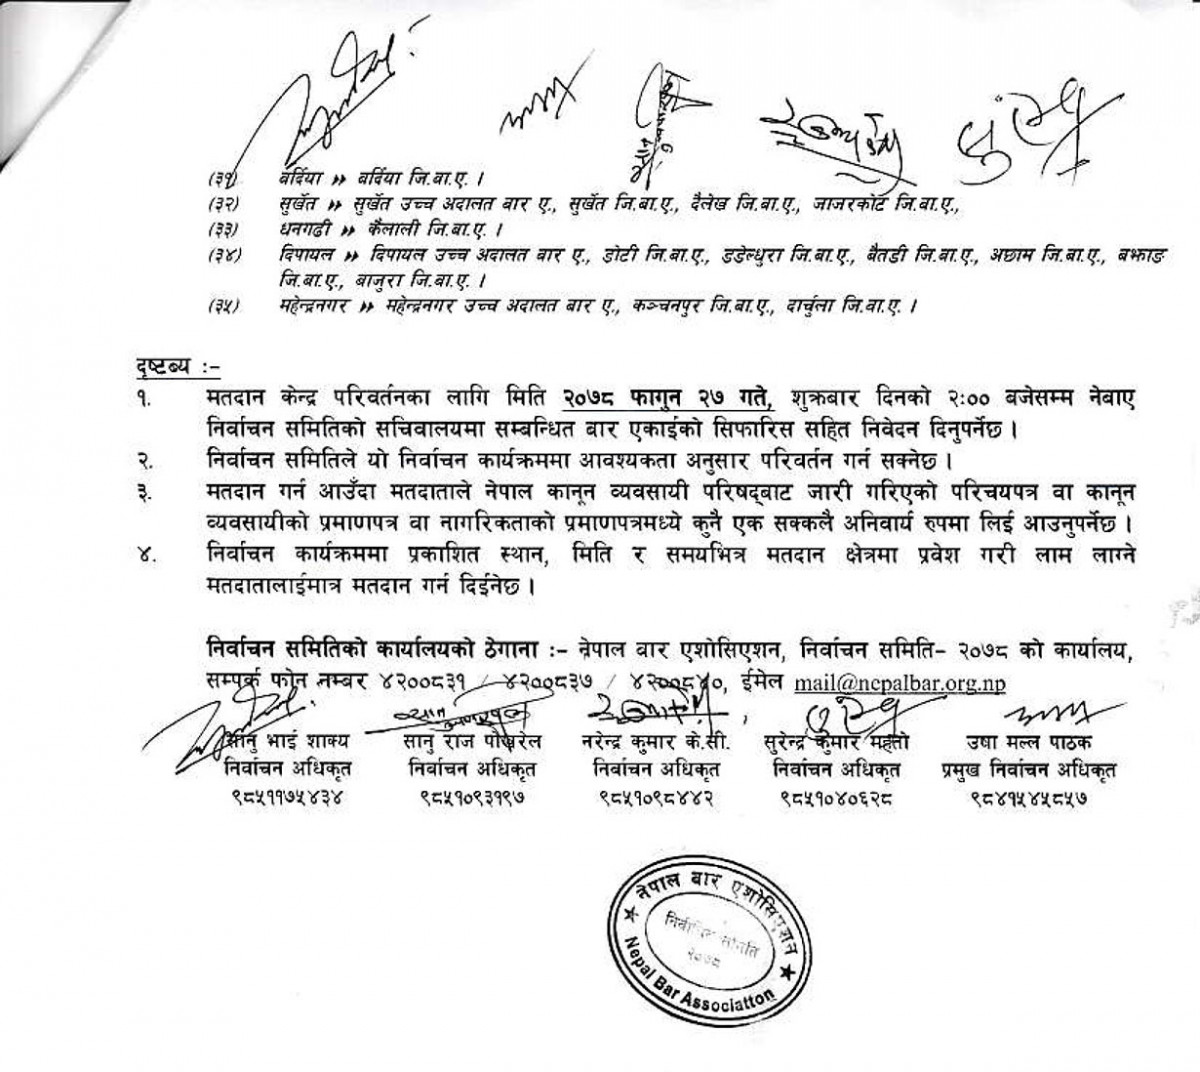 (३१) बर्दिया » बर्दिया जि.बा.ए. ।
(३२) सुर्खेत » सुर्खेत उच्च अदालत बार ए., सुर्खेत जि.बा.ए., दैलेख जि.बा.ए., जाजरकोट जि.बा.ए.,
(३३) धनगढी » कैलाली जि.बा.ए. ।
(३४) दिपायल » दिपायल उच्च अदालत बार ए., डोटी जि.बा.ए., डडेल्धुरा जि.बा.ए., बैतडी जि.बा.ए., अछाम जि.बा.ए., बझाङ
जि.बा.ए., बाजुरा जि.बा.ए. ।
(३५) महेन्द्रनगर » महेन्द्रनगर उच्च अदालत बार ए., कञ्चनपुर जि.बा.ए., दार्चुला जि.बा.ए. ।
दृष्टब्य :–
१. मतदान केन्द्र परिवर्तनका लागि मिति २०७८ फागुन २७ गते, शुक्रबार दिनको २:०० बजेसम्म नेवाए
निर्वाचन समितिको सचिवालयमा सम्बन्धित बार एकाईको सिफारिस सहित निवेदन दिनुपर्नेछ ।
२. निर्वाचन समितिले यो निर्वाचन कार्यक्रममा आवश्यकता अनुसार परिवर्तन गर्न सक्नेछ ।
३. मतदान गर्न आउँदा मतदाताले नेपाल कानून व्यवसायी परिषद्बाट जारी गरिएको परिचयपत्र वा कानून
व्यवसायीको प्रमाणपत्र वा नागरिकताको प्रमाणपत्रमध्ये कुनै एक सक्कलै अनिवार्य रुपमा लिई आउनुपर्नेछ ।
४. निर्वाचन कार्यक्रममा प्रकाशित स्थान, मिति र समयभित्र मतदान क्षेत्रमा प्रवेश गरी लाम लाग्ने
मतदातालाईमात्र मतदान गर्न दिईनेछ ।
निर्वाचन समितिको कार्यालयको ठेगाना :– नेपाल बार एशोसिएशन, निर्वाचन समिति– २०७८ को कार्यालय,
सम्पर्क फोन नम्बर ४२००८३१ / ४२००८३७ / ४२००८४०, ईमेल mail@nepalbar.org.np
सानु भाई शाक्य सानु राज पोख्रेल नरेन्द्र कुमार के.सी. सुरेन्द्र कुमार महतो उषा मल्ल पाठक
निर्वाचन अधिकृत निर्वाचन अधिकृत निर्वाचन अधिकृत निर्वाचन अधिकृत प्रमुख निर्वाचन अधिकृत
९८५११७५४३४ ९८५१०९३१९७ ९८५१०९८४४२ ९८५१०४०६२८ ९८४१५४५८५७
नेपाल बार एशोसिएशन
निर्वाचन समिति
२०७८
Nepal Bar Association